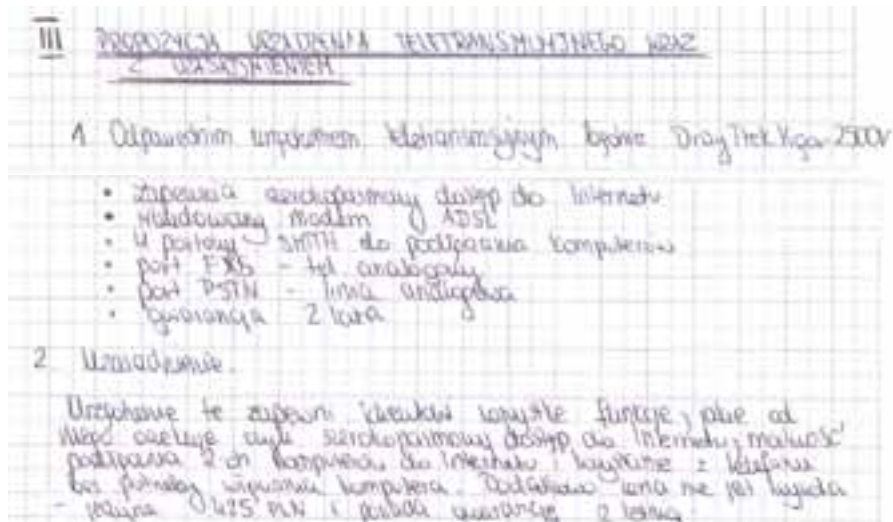 III PROPOZYCJA URZĄDZENIA TELETRANSMISYJNEGO WRAZ
Z UZASADNIENIEM
1 Odpowiednim urządzeniem teletransmisyjnym będzie Dray Trek Vigor 2500V
• zapewnia szerokopasmowy dostęp do Internetu
• wbudowany modem ADSL
• 4 portowy do podłączania komputerów
• port FXS - tel analogowy
• port PSTN - linia analogowa
• gwarancja 2 lata
2 Uzasadnienie.
Urządzenie te zapewni wszystkie funkcje, od
czyli szerokopasmowy dostęp do Internetu, możliwość
podłączania 2-ch komputerów do Internetu i z telefonu
bez potrzeby komputera. Dodatkowo cena nie jest
- jedyne 425 PLN i posiada gwarancję 2 letnią